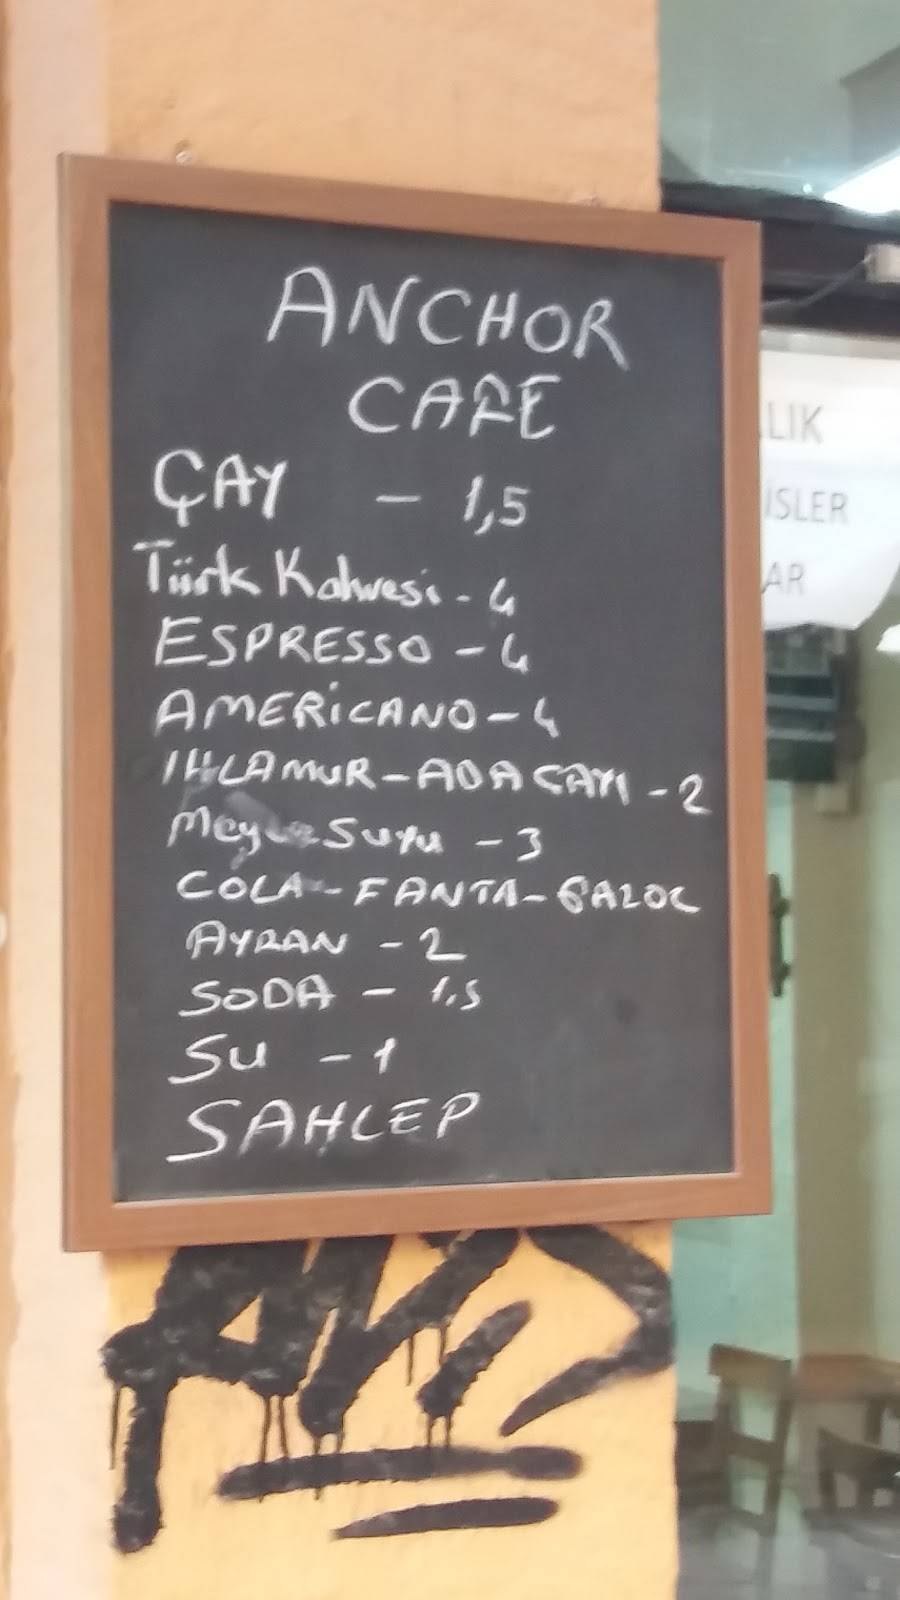 ANCHOR
CAFE
ÇAY - 1,5
Türk Kahvesi - 4
ESPRESSO - 4
AMERİCANO - 4
IHLAMUR - ADA ÇAYI - 2
Meyve Suyu - 3
COLA - FANTA - GAZOZ
AYRAN - 2
SODA - 1.5
SU - 1
SAHLEP
LIK
İSLER
AR